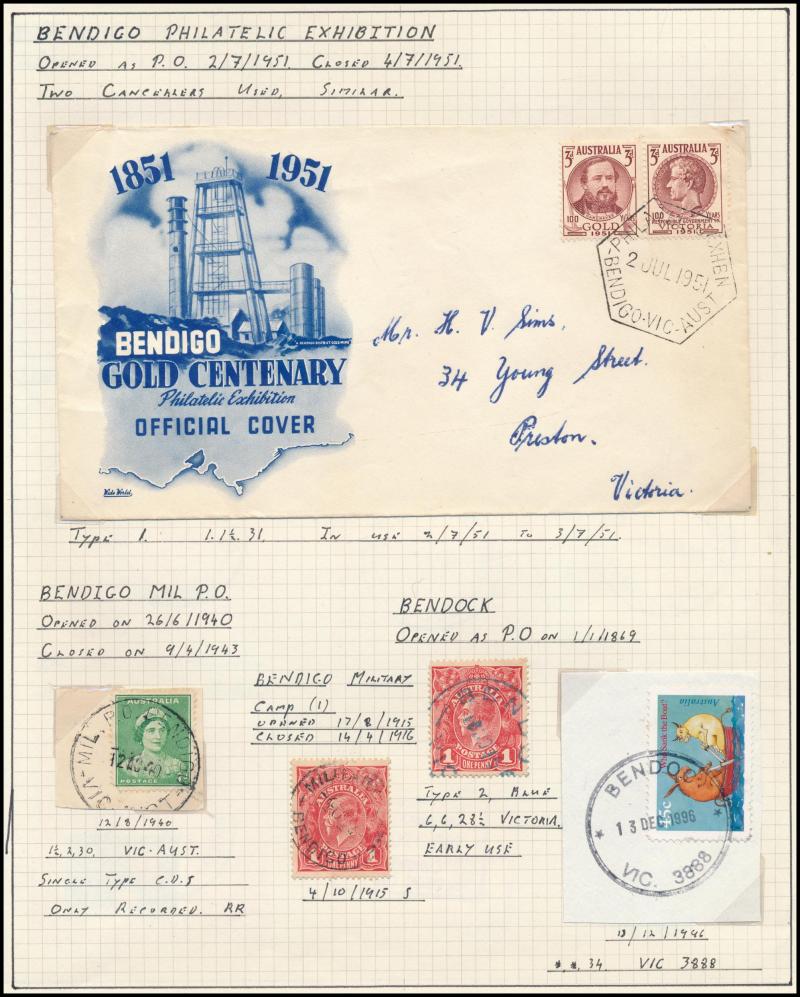 BENDIGO PHILATELIC EXHIBITION
OPENED AS P.O. 2/7/1951. CLOSED 4/7/1951.
TWO CANCELLERS USED, SIMILAR.
1851 1951
BENDIGO
GOLD CENTENARY
Philatelic Exhibition
OFFICIAL COVER
Wide World
3d AUSTRALIA 3d
100 YEARS
GOLD
1951
3d AUSTRALIA 3d
100 YEARS
RESPONSIBLE GOVERNMENT IN
VICTORIA
1951
EXHBN
2 JUL 1951
BENDIGO·VIC-AUST
Mr. H. V. Sims,
34 Young Street.
Preston.
Victoria.
TYPE 1. 1.1½.31. IN USE 2/7/51 TO 3/7/51.
BENDIGO MIL P.O.
OPENED ON 26/6/1940
CLOSED ON 9/4/1943
AUSTRALIA
POSTAGE
MIL. P.O.
12AU40
12/8/1940
1½,2,30, VIC-AUST.
SINGLE TYPE C.D.S
ONLY RECORDED. RR
BENDIGO MILITARY
CAMP (1)
OPENED 17/8/1915
CLOSED 14/4/1916
MILITARY
BENDIGO
AUSTRALIA
ONE PENNY
4/10/1915 S
BENDOCK
OPENED AS P.O ON 1/1/1869
AUSTRALIA
POSTAGE
1 ONE PENNY 1
TYPE 2, BLUE
,6,6,28½ VICTORIA.
EARLY USE
Australia
Who Sank the Boat?
45c
BENDOCK
13 DEC 1996
VIC. 3888
13/12/1996
*,*,34. VIC 3888